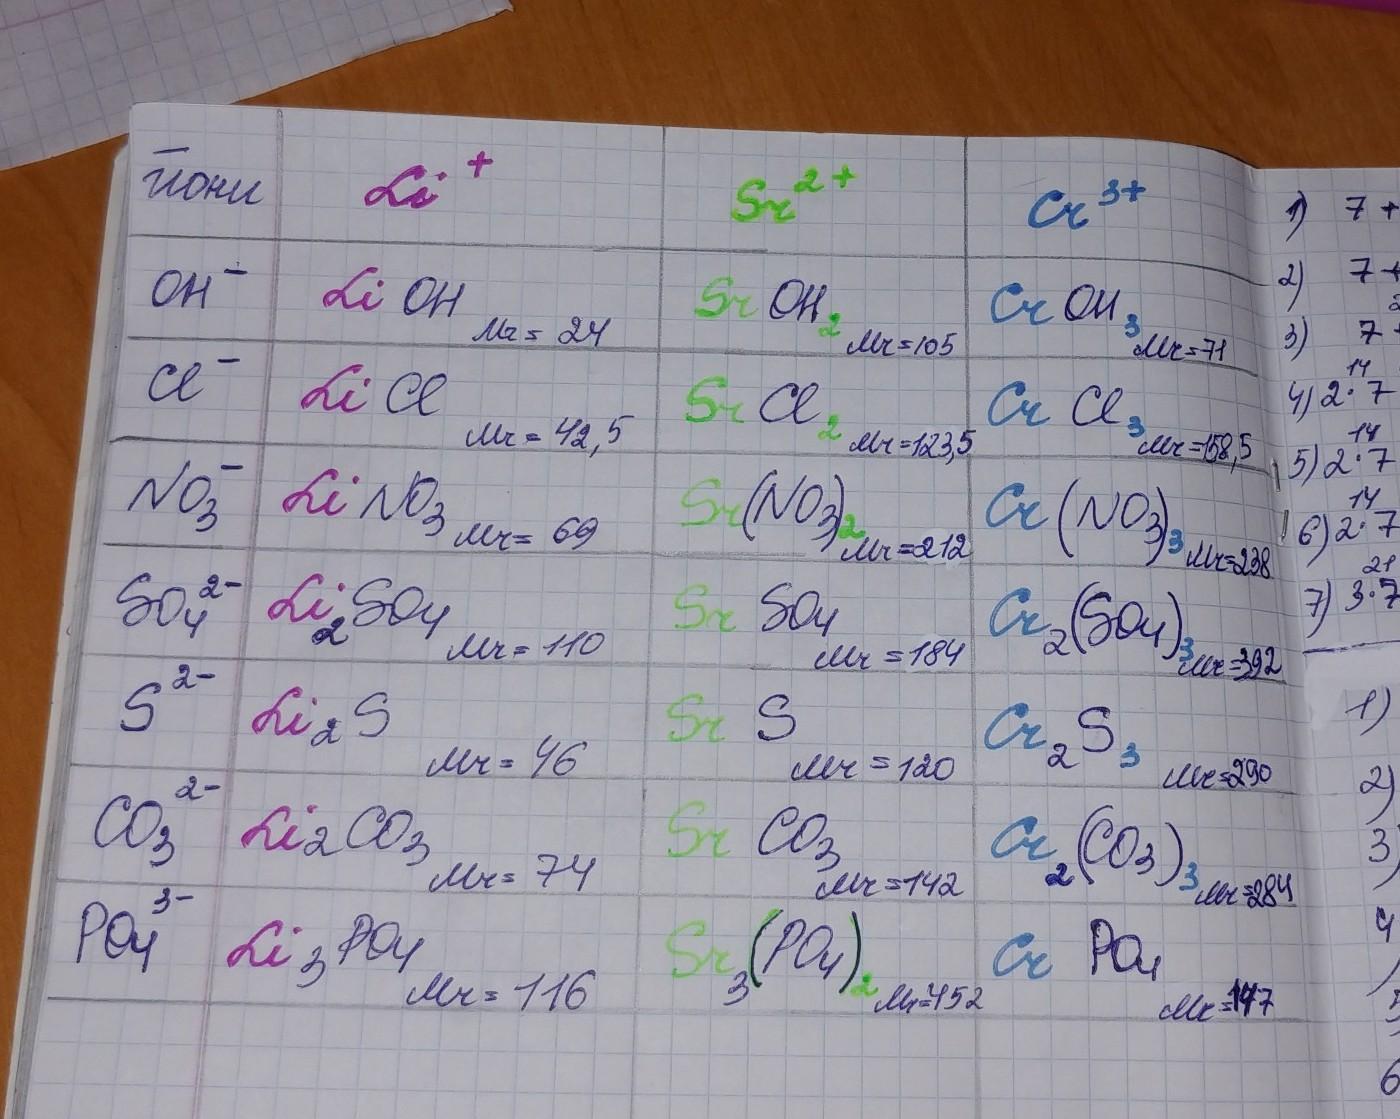 Йони Li⁺ Sr²⁺ Cr³⁺
OH⁻ LiOH Mr=24 SrOH₂ Mr=105 CrOH₃ Mr=71
Cl⁻ LiCl Mr=42,5 SrCl₂ Mr=123,5 CrCl₃ Mr=158,5
NO₃⁻ LiNO₃ Mr=69 Sr(NO₃)₂ Mr=212 Cr(NO₃)₃ Mr=238
SO₄²⁻ Li₂SO₄ Mr=110 SrSO₄ Mr=184 Cr₂(SO₄)₃ Mr=392
S²⁻ Li₂S Mr=46 SrS Mr=120 Cr₂S₃ Mr=290
CO₃²⁻ Li₂CO₃ Mr=74 SrCO₃ Mr=142 Cr₂(CO₃)₃ Mr=284
PO₄³⁻ Li₃PO₄ Mr=116 Sr₃(PO₄)₂ Mr=452 CrPO₄ Mr=147
1) 7+
2) 7+
3) 7
14
4) 2·7
14
5) 2·7
14
6) 2·7
21
7) 3·7
1)
2)
3)
4
5
6